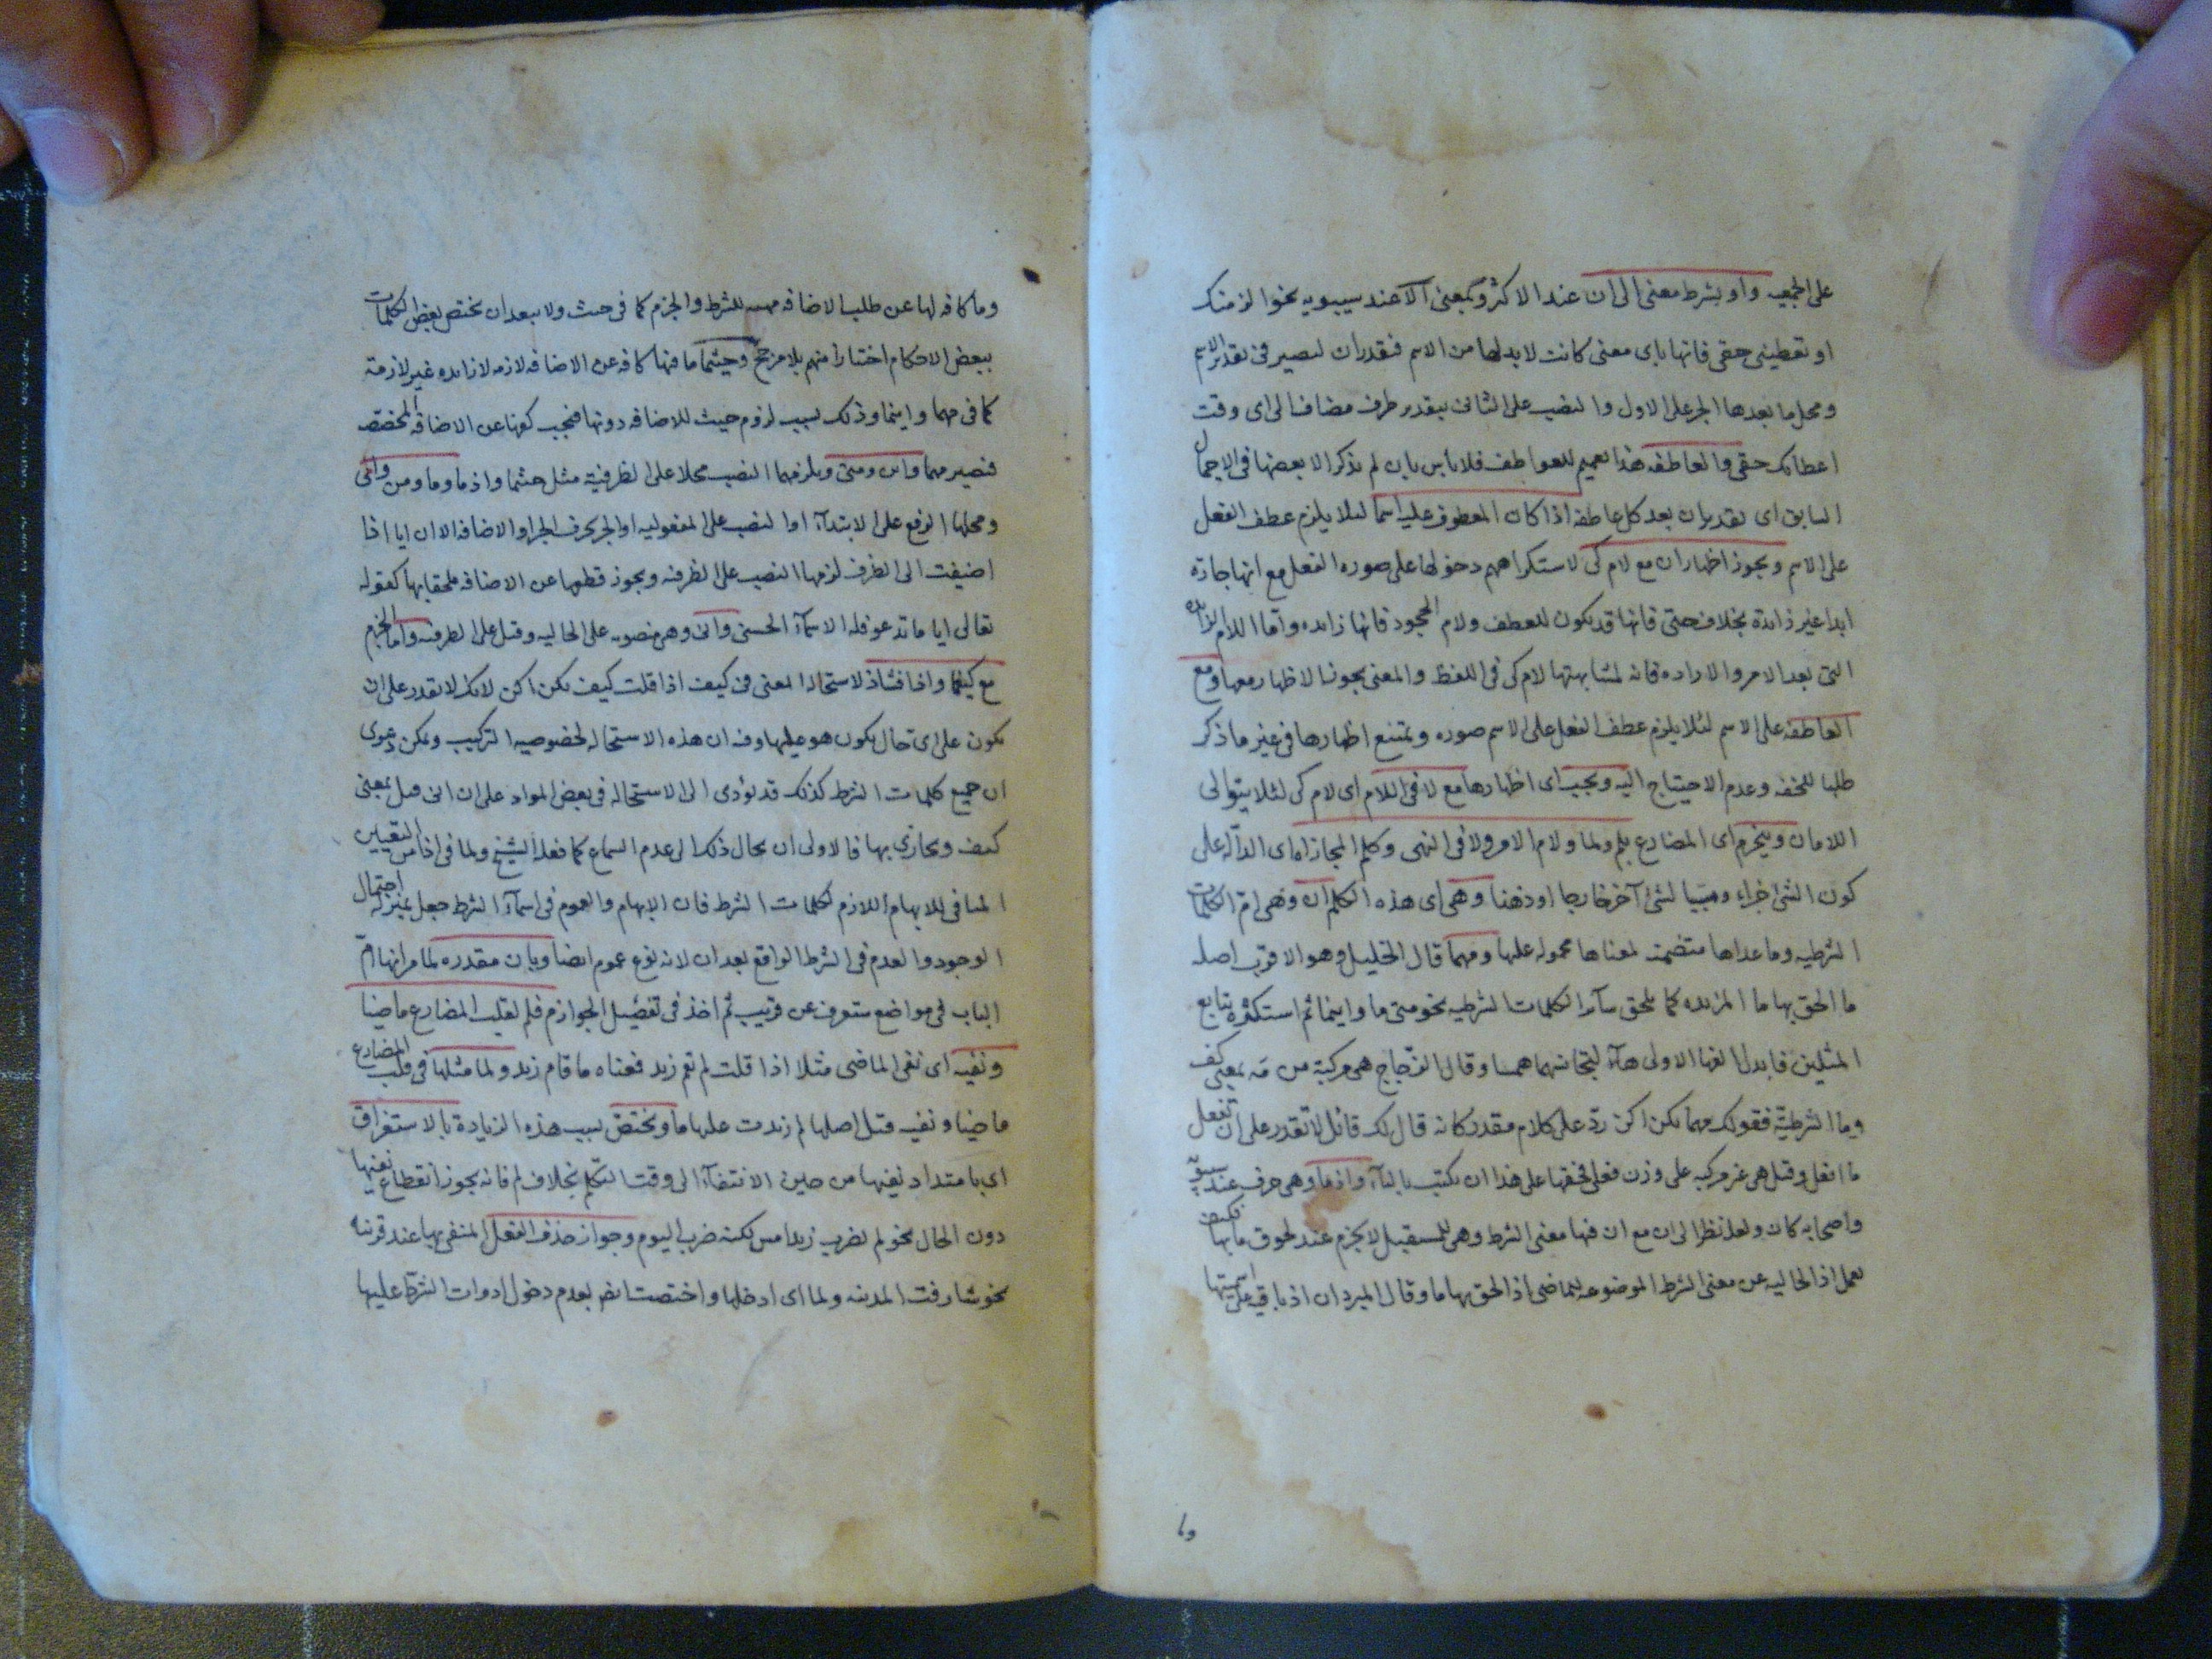 على الجمعيه واو بشرط معنى الى ان عند الاكثر وبمعنى الا عند سيبويه نحو الزمنك
او تعطينى حقى فانها باى معنى كانت لا بد لها من الاسم فيقدر ان لتصير فى تقدير الاسم
ومحل ما بعدها الجر على الاول والنصب على الثانى بتقدير ظرف مضاف الى اى وقت
اعطائك حقى والعاطفه هذا تعميم للعواطف فلا باس بان لم يذكر الا بعضها فى الاجمال
السابق اى تقدير ان بعد كل عاطفه اذا كان المعطوف عليه اسما لئلا يلزم عطف الفعل
على الاسم ويجوز اظهار ان مع لام كى لاستكراههم دخولها على صوره الفعل مع انها جارة
ابدا غير زائدة بخلاف حتى فانها قد يكون للعطف ولام الجحود فانها زائده واما اللام الزائده
التى بعد الامر والاراده فانه لمشابهتها لام كى فى اللفظ والمعنى يجوز الاظهار معها ومع
العاطفه على الاسم لئلا يلزم عطف الفعل على الاسم صوره ويمتنع اظهارها فى غير ما ذكر
طلبا للخفه وعدم الاحتياج اليه ويجب اى اظهارها مع لا فى اللام اى لام كى لئلا يتوالى
اللامان وينجزم اى المضارع بلم ولما ولام الامر ولا فى النهى وكلم المجازاة اى الدالة على
كون الشئ جزاء ومسببا لشئ آخر خارجا او ذهنا وهى اى هذه الكلم ان وهى ام الكلمات
الشرطيه وما عداها متضمنه لمعناها محموله عليها ومهما قال الخليل وهو الاقرب اصله
ما الحق بها ما المزيده كما يلحق سائر الكلمات الشرطيه نحو متى ما واينما ثم استكره تتابع
المثلين فابدل الفها الاولى هاء لتجانسهما همسا وقال الزجاج هى مركبة من مه بمعنى كف
وما الشرطية فقولك مهما يكن اكن رد على كلام مقدر كانه قال لك قائل لا تقدر على ان تفعل
ما افعل وقيل هى غير مركبه على وزن فعلى فحقها على هذا ان يكتب بالياء واذما وهى حرف عند سيبويه
واصحابه كان ولعله نظرا الى ان مع ان فيها معنى الشرط وهى للمستقبل لا يجزم عند لحوق ما بها فكيف
يعمل اذ الخاليه عن معنى الشرط الموضوعه للماضى اذا لحق بها ما وقال المبرد ان اذ باقيه على اسميتها
وما
وما كافه لها عن طلب الاضافه مهيئه للشرط والجزم كما فى حيث ولا يبعد ان يختص بعض الكلمات
ببعض الاحكام اختيارا منهم بلا مرجح وحيثما ما فيها كافه عن الاضافه لازمه لا زائده غير لازمة
كما فى مهما واينما وذلك بسبب لزوم حيث للاضافه دونها فيجب كفها عن الاضافه المخصصه
فتصير مبهما واين ومتى ويلزمهما النصب محلا على الظرفية مثل حيثما واذما وما ومن واى
ومحلها الرفع على الابتداء او النصب على المفعوليه او الجر بحرف الجر او الاضافه الا ان ايا اذا
اضيفت الى الظرف لزمها النصب على الظرفيه ويجوز قطعها عن الاضافه ملحقا بها كقوله
تعالى ايا ما تدعو فله الاسماء الحسنى وانى وهى منصوبه على الحاليه وقيل على الظرفيه واما الجزم
مع كيفما واذا فشاذ لاستحاله المعنى فى كيف اذا قلت كيف تكن اكن لانك لا تقدر على ان
تكون على اى حال يكون هو عليها وفيه ان هذه الاستحاله لخصوصيه التركيب ويمكن دعوى
ان جميع كلمات الشرط كذلك قد تؤدى الى الاستحاله فى بعض المواد على ان انى قيل بمعنى
كيف ويجازى بها فالاولى ان يحال ذلك الى عدم السماع كما فعله الشيخ ولما فى اذا من التعيين
المنافى للابهام اللازم لكلمات الشرط فان الابهام والعموم فى اسماء الشرط جعل بمنزله احتمال
الوجود والعدم فى الشرط الواقع بعد ان لانه نوع عموم ايضا وبان مقدره لما مر انها ام
الباب فى مواضع ستعرف عن قريب ثم اخذ فى تفصيل الجوازم فلم لقلب المضارع ماضيا
ونفيه اى نفى الماضى مثلا اذا قلت لم يقم زيد فمعناه ما قام زيد ولما مثلها فى قلب المضارع
ماضيا ونفيه قيل اصلها لم زيدت عليها ما ويختص بسبب هذه الزيادة بالاستغراق
اى بامتداد نفيها من حين الانتفاء الى وقت التكلم بخلاف لم فانه يجوز انقطاع نفيها
دون الحال نحو لم يضرب زيد امس لكنه ضرب اليوم وجواز حذف الفعل المنفى بها عند قرينه
نحو شارفت المدينه ولما اى ادخلها واختصت ايضا بعدم دخول ادوات الشرط عليها